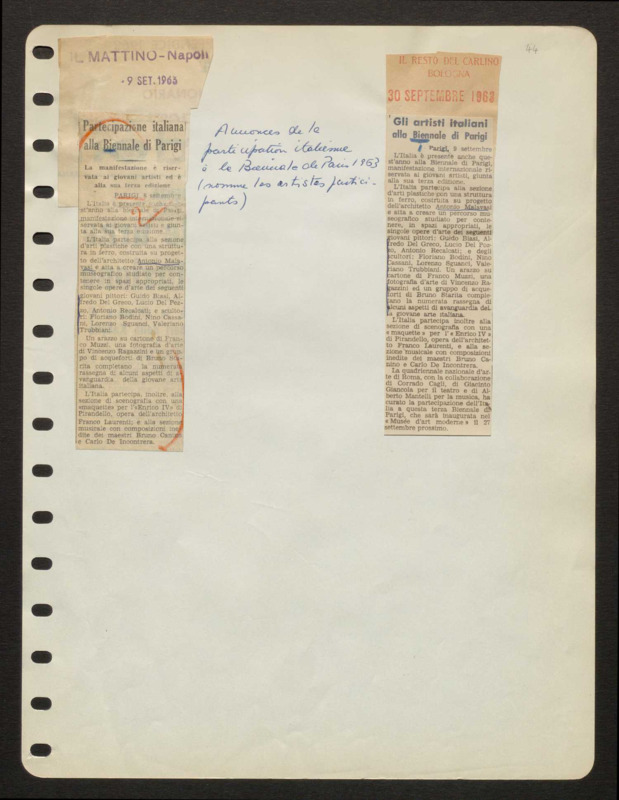 44
IL MATTINO-Napoli
- 9 SET. 1963
Partecipazione italiana
alla Biennale di Parigi
La manifestazione è riser-
vata ai giovani artisti ed è
alla sua terza edizione
PARIGI, 9 settembre
L'Italia è presente anche que-
st'anno alla Biennale di Parigi,
manifestazione internazionale ri-
servata ai giovani artisti e giun-
ta alla sua terza edizione.
L'Italia partecipa alla sezione
d'arti plastiche con una struttu-
ra in ferro, costruita su proget-
to dell'architetto Antonio Mala-
vasi e atta a creare un percorso
museografico studiato per con-
tenere in spazi appropriati, le
singole opere d'arte dei seguenti
giovani pittori: Guido Biasi, Al-
fredo Del Greco, Lucio Del Pez-
zo, Antonio Recalcati; e sculto-
ri: Floriano Bodini, Nino Cassa-
ni, Lorenzo Sguanci, Valeriano
Trubbiani.
Un arazzo su cartone di Fran-
co Muzzi, una fotografia d'arte
di Vincenzo Ragazzini e un grup-
po di acqueforti di Bruno Sta-
rita completano la numerata
rassegna di alcuni aspetti di a-
vanguardia della giovane arte
italiana.
L'Italia partecipa, inoltre, alla
sezione di scenografia con una
«maquette» per l'«Enrico IV» di
Pirandello, opera dell'architetto
Franco Laurenti; e alla sezione
musicale con composizioni ine-
dite dei maestri Bruno Canino
e Carlo De Incontrera.
Annonces de la
participation italienne
à la Biennale de Paris 1963
(nomme les artistes partici-
pants)
IL RESTO DEL CARLINO
BOLOGNA
30 SEPTEMBRE 1963
Gli artisti italiani
alla Biennale di Parigi
Parigi, 9 settembre
L'Italia è presente anche que-
st'anno alla Biennale di Parigi,
manifestazione internazionale ri-
servata ai giovani artisti, giunta
alla sua terza edizione.
L'Italia partecipa alla sezione
d'arti plastiche con una struttura
in ferro, costruita su progetto
dell'architetto Antonio Malavasi
e atta a creare un percorso mu-
seografico studiato per conte-
nere, in spazi appropriati, le
singole opere d'arte dei seguenti
giovani pittori: Guido Biasi, Al-
fredo Del Greco, Lucio Del Pez-
zo, Antonio Recalcati; e degli
scultori: Floriano Bodini, Nino
Cassani, Lorenzo Sguanci, Vale-
riano Trubbiani. Un arazzo su
cartone di Franco Muzzi, una
fotografia d'arte di Vincenzo Ra-
gazzini ed un gruppo di acque-
forti di Bruno Starita comple-
tano la numerata rassegna di
alcuni aspetti di avanguardia del-
la giovane arte italiana.
L'Italia partecipa inoltre alla
sezione di scenografia con una
«maquette» per l'«Enrico IV»
di Pirandello, opera dell'architet-
to Franco Laurenti, e alla se-
zione musicale con composizioni
inedite dei maestri Bruno Ca-
nino e Carlo De Incontrera.
La quadriennale nazionale d'ar-
te di Roma, con la collaborazione
di Corrado Cagli, di Giacinto
Giancola per il teatro e di Al-
berto Mantelli per la musica, ha
curato la partecipazione dell'Ita-
lia a questa terza Biennale di
Parigi, che sarà inaugurata nel
«Musée d'art moderne» il 27
settembre prossimo.